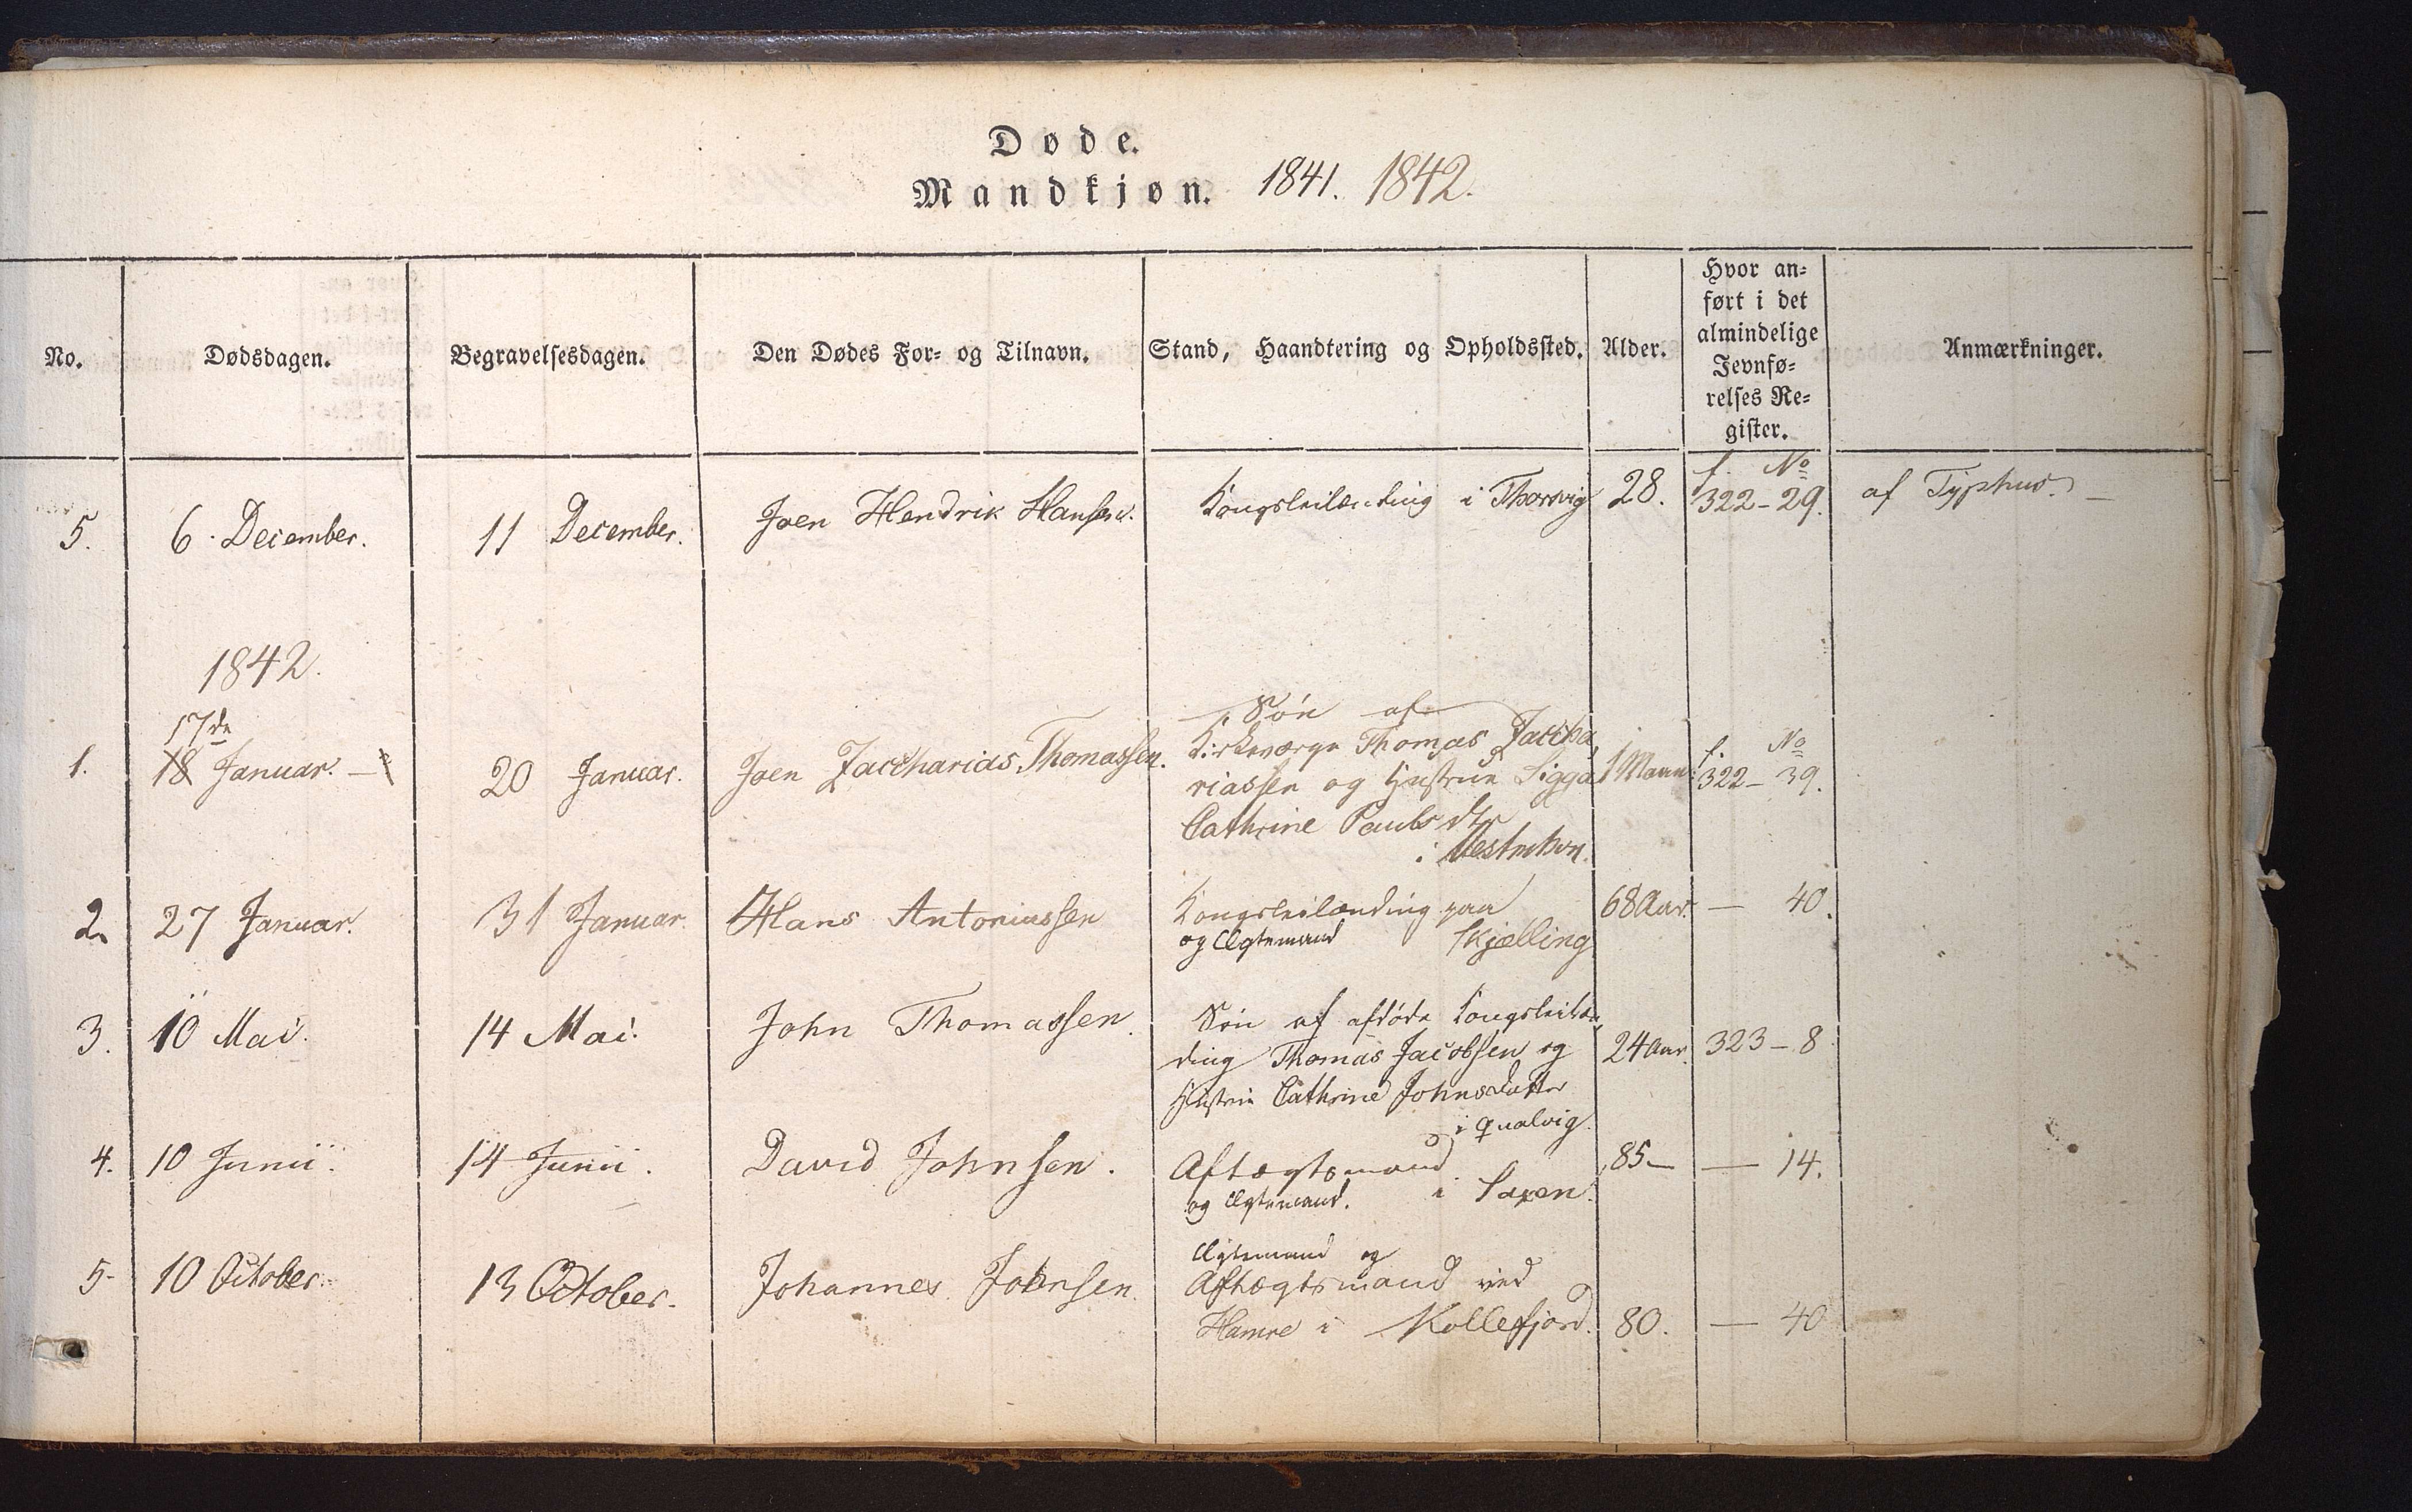 Døde.
Mandkjøn. 1841. 1842.
No.
Dødsdagen.
Begravelsesdagen.
Den Dødes For- og Tilnavn.
Stand, Haandtering og Opholdssted.
Alder.
Hvor an-
ført i det
almindelige
Jevnfø-
relses Re-
gister.
Anmærkninger.
5.
6. December.
11 December.
Joen Hendrik Hansen.
Kongsleilænding i Thorsvig
28.
f. No
322-29.
af Typhus. -
1842.
1.
17de
18 Januar. -
20 Januar.
Joen Zaccharias Thomassen.
Søn af
Kirkeværge Thomas Zaccha
riassen og Hustrue Sigga
Cathrine Pauls dtr
i Vestmhvn.
1 Maan:
f. No
322- 39.
2.
27 Januar.
31 Januar.
Hans Antoniussen
Kongsleilænding paa
og Ægtemand Skjælling
68 Aar.
— 40.
3.
10 Mai.
14 Mai.
John Thomassen.
Søn af afdøde Kongsleilæn
ding Thomas Jacobsen og
Hustrue Cathrine Johnsdatter
i Qualvig.
24 Aar.
323-8
4.
10 Junii.
14 Junii.
David Johnsen.
Aftægtsmand
og Ægtemand. i Saxen.
85—
— 14.
5-
10 October.
13 October.
Johannes Joensen.
Ægtemand og
Aftægtsmand ved
Hamre i Kollefjord.
80.
— 40